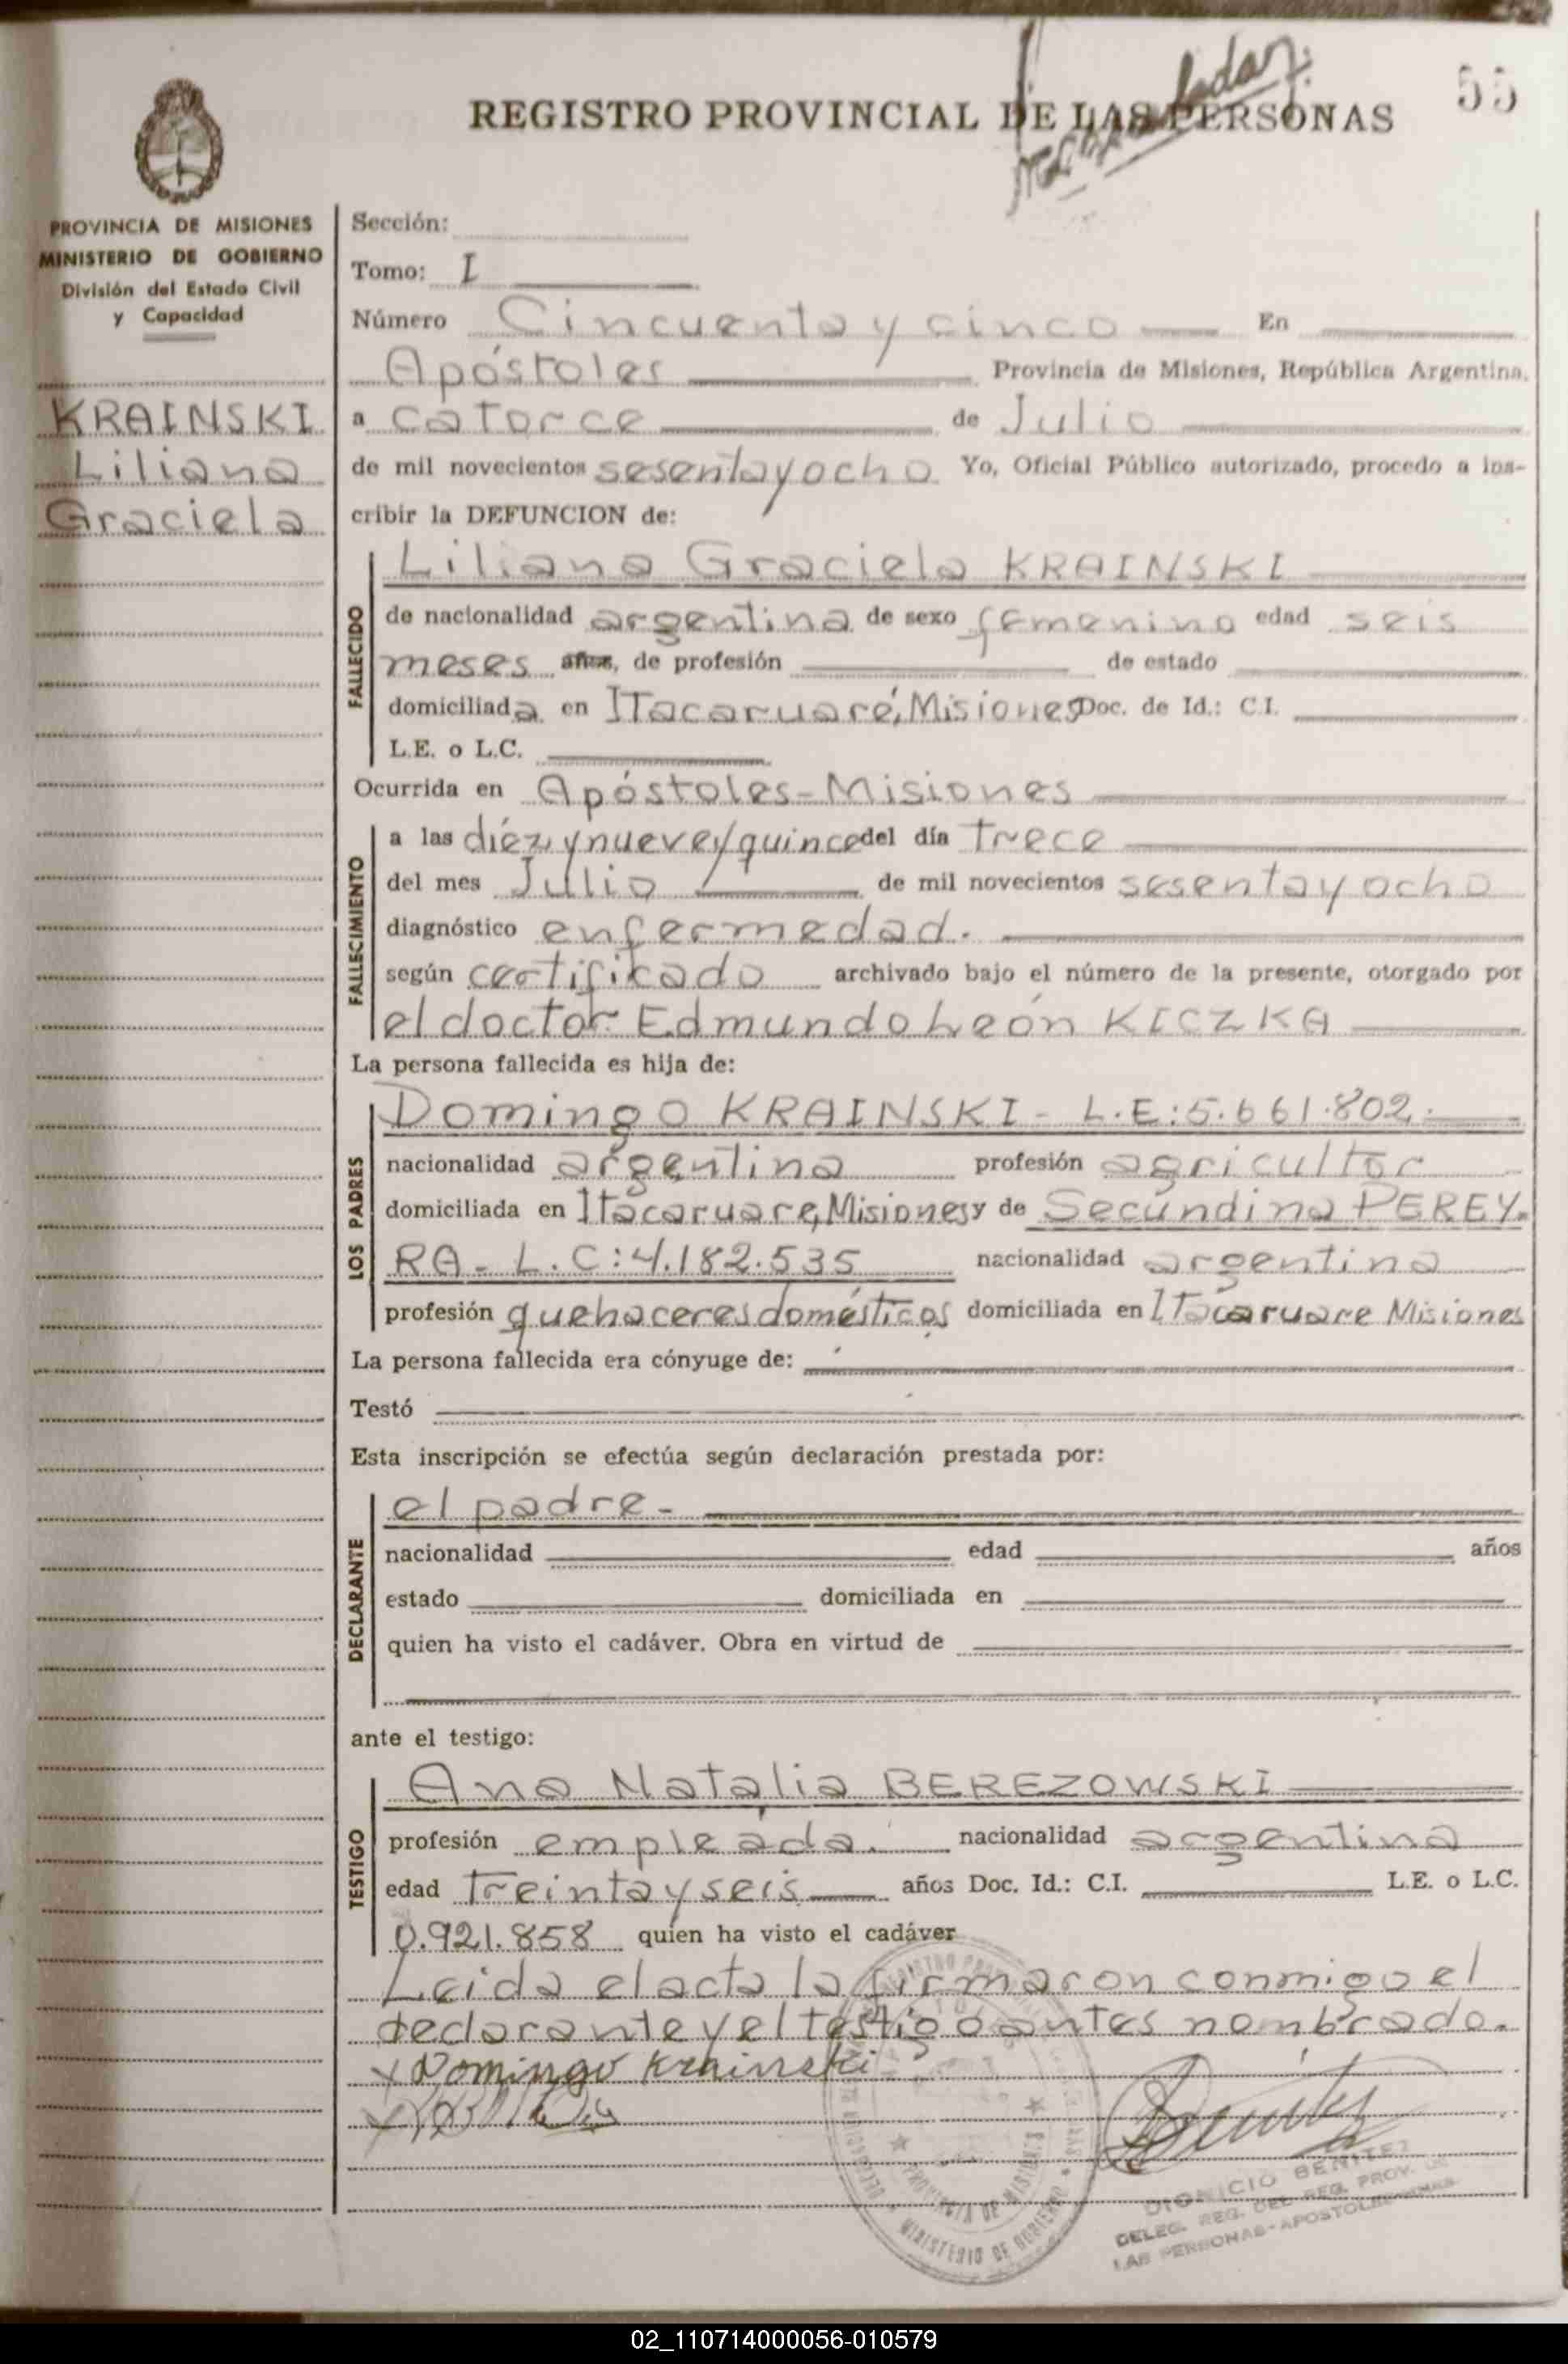 55
REGISTRO PROVINCIAL DE LAS PERSONAS
PROVINCIA DE MISIONES
MINISTERIO DE GOBIERNO
División del Estado Civil
y Capacidad
KRAINSKI
Liliana
Graciela
Sección:
Tomo: I
Número Cincuenta y cinco En
Apóstoles Provincia de Misiones, República Argentina,
a catorce de Julio
de mil novecientos sesentayocho Yo, Oficial Público autorizado, procedo a ins-
cribir la DEFUNCION de:
FALLECIDO
Liliana Graciela KRAINSKI
de nacionalidad argentina de sexo femenino edad seis
meses años, de profesión de estado
domiciliada en Itacaruaré, Misiones Doc. de Id.: C.I.
L.E. o L.C.
Ocurrida en Apóstoles-Misiones
FALLECIMIENTO
a las diéz y nueve y quince del día Trece
del mes Julio de mil novecientos sesentayocho
diagnóstico enfermedad.
según certificado archivado bajo el número de la presente, otorgado por
el doctor Edmundo León KICZKA
La persona fallecida es hija de:
LOS PADRES
Domingo KRAINSKI - L.E:5.661.802.
nacionalidad argentina profesión agricultor
domiciliada en Itacaruare, Misiones y de Secúndina PEREY-
RA - L.C:4.182.535 nacionalidad argentina
profesión quehaceres domésticos domiciliada en Itacaruare Misiones
La persona fallecida era cónyuge de:
Testó
Esta inscripción se efectúa según declaración prestada por:
DECLARANTE
el padre -
nacionalidad edad años
estado domiciliada en
quien ha visto el cadáver. Obra en virtud de
ante el testigo:
TESTIGO
Ana Natalia BEREZOWSKI
profesión empleada. nacionalidad argentina
edad Treintayseis años Doc. Id.: C.I. L.E. o L.C.
0.921.858 quien ha visto el cadáver
Leida el acta la firmaron conmigo el
declarante y el testigo antes nombrado.
x Domingo Krainski
PROVINCIA DE MISIONES
MINISTERIO DE GOBIERNO
DIONICIO BENITEZ
DELEG. REG. DEL REG. PROV. DE
LAS PERSONAS-APOSTOLES-MNES
02_110714000056-010579